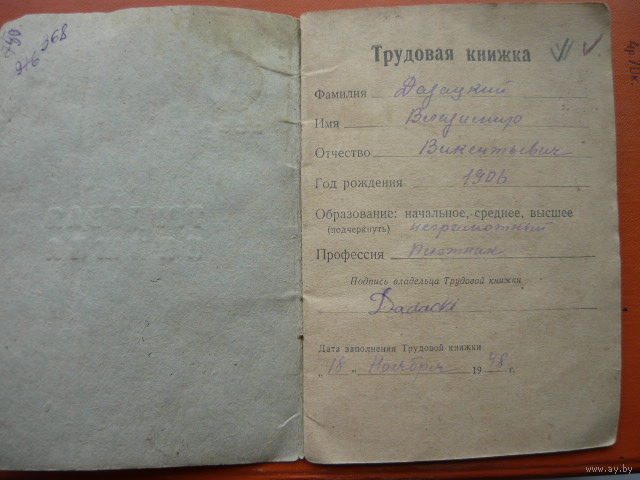 368
Трудовая книжка
Фамилия Дадацкий
Имя Владимир
Отчество Викентьевич
Год рождения 1906
Образование: начальное, среднее, высшее
(подчеркнуть) неграмотный
Профессия плотник
Подпись владельца Трудовой книжки
Dadacki
Дата заполнения Трудовой книжки
"18" Ноября 1948 г.
www.ay.by